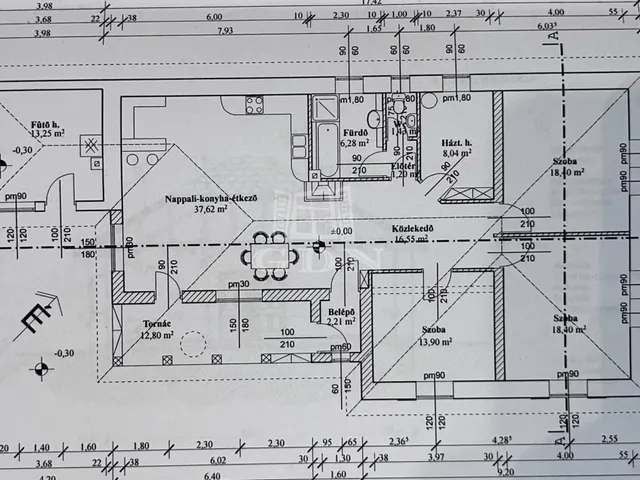 3.98
17.42
3.68 22 38 6.00 10 2.30 10 1.00 10 2.37 30 4.00 55
3.98 7.93 1.65 1.80 6.03⁵
A
90 60
90 60
90 60
pm1,80
pm1,80
75
Fűtő h.
13,25 m²
-0,30
Fürdő
6,28 m²
1,43 m²
Előtér
1,20 m²
90 210
Házt. h.
8,04 m²
90 210
Szoba
18,40 m²
pm90
pm90
Nappali-konyha-étkező
37,62 m²
±0,00
Közlekedő
16,55 m²
100 210
100 210
pm90
120 120
100 210
150 180
pm30
90 210
GDN
100 210
pm30
150 180
Belépő
2,21 m²
100 210
Tornác
12,80 m²
100
210
pm60
60 150
100 210
Szoba
13,90 m²
Szoba
18,40 m²
pm90
pm90
É
-0,30
pm90
pm90
120 120
120 120
A
20 1.40 1.60 1.80 2.30 2.30 95 65 2.36⁵ 4.28⁵ 2.55
3.68 22 38 6.02 30 1.30 38 3.97 30 4.00 55
4.20 6.40 1.60 9.20